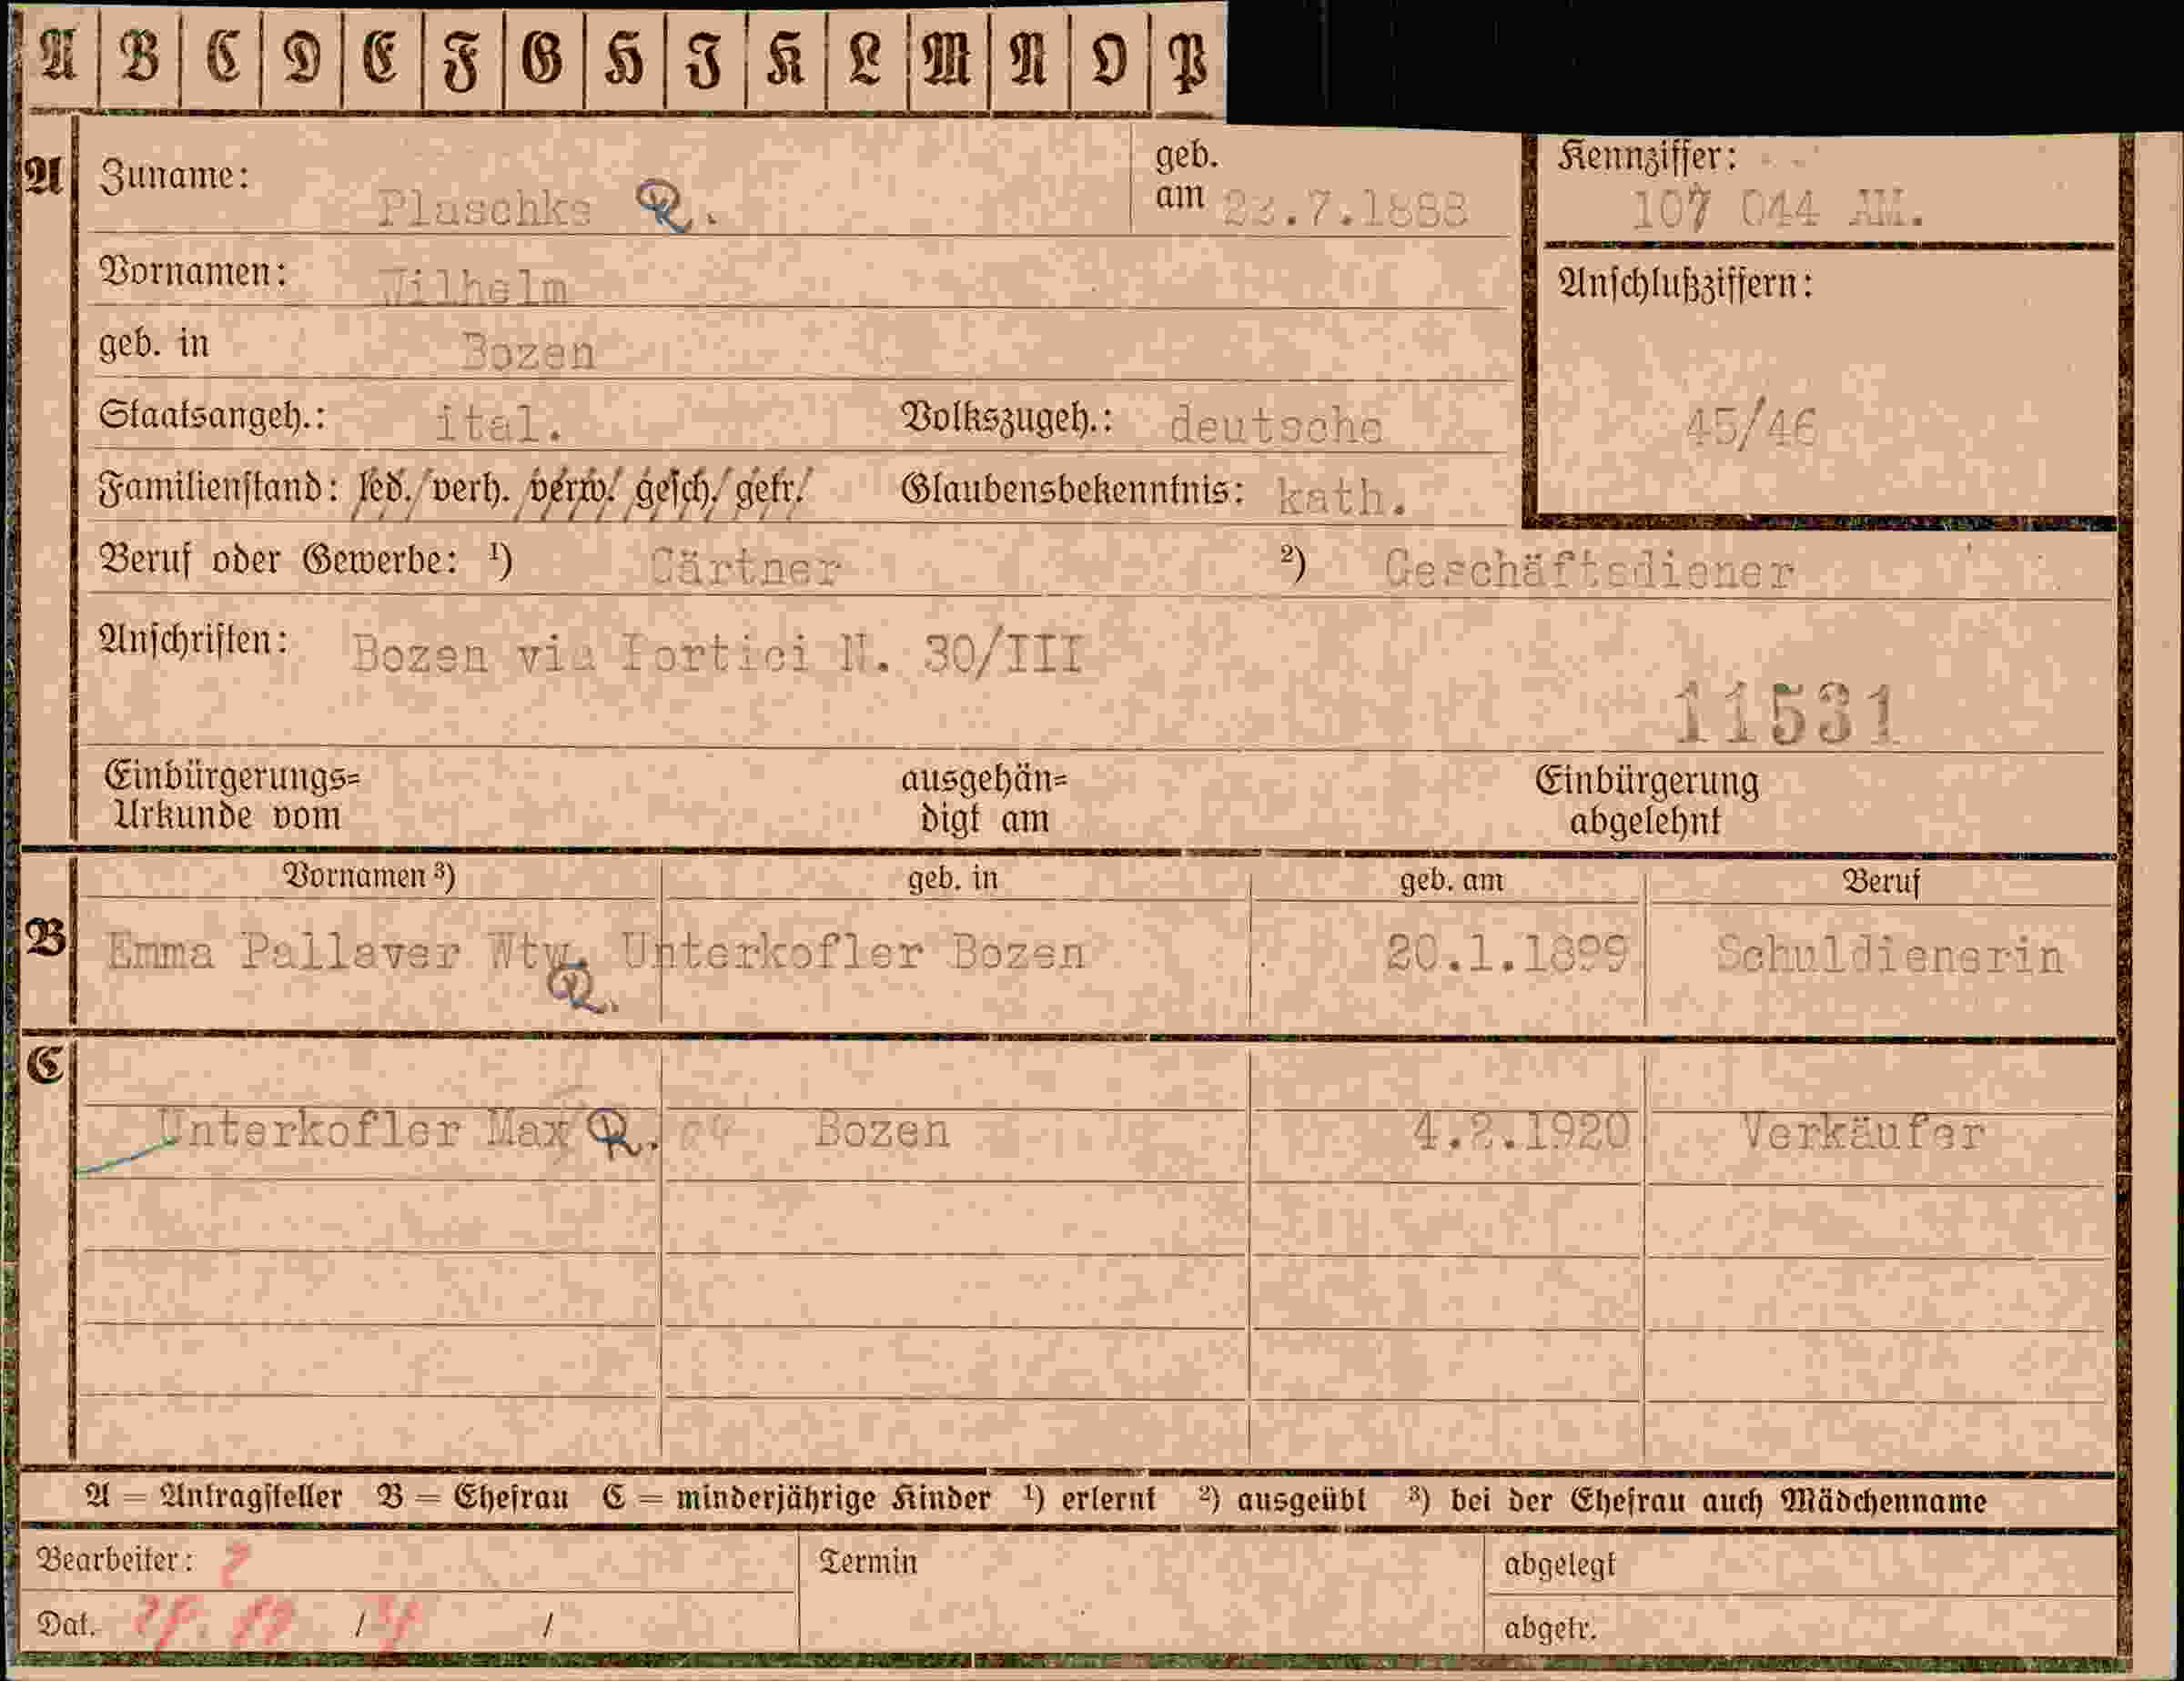 A B C D E F G H I K L M N O P
A Zuname: Plaschke R. geb. am 23.7.1888 Kennziffer: 107 044 AM.
Vornamen: Wilhelm Anschlußziffern:
geb. in Bozen
Staatsangeh.: ital. Volkszugeh.: deutsche 45/46
Familienstand: led./verh. verw./ gesch./ getr./ Glaubensbekenntnis: kath.
Beruf oder Gewerbe: ¹) Gärtner ²) Geschäftsdiener
Anschriften: Bozen via Portici N. 30/III
11531
Einbürgerungs= ausgehän= Einbürgerung
Urkunde vom digt am abgelehnt
Vornamen ³) geb. in geb. am Beruf
B Emma Pallaver Wtw. Unterkofler Bozen 20.1.1899 Schuldienerin
R.
C
Unterkofler Max R. Bozen 4.2.1920 Verkäufer
A = Antragsteller B = Ehefrau C = minderjährige Kinder ¹) erlernt ²) ausgeübt ³) bei der Ehefrau auch Mädchenname
Bearbeiter: Termin abgelegt
Dat. / / abgetr.